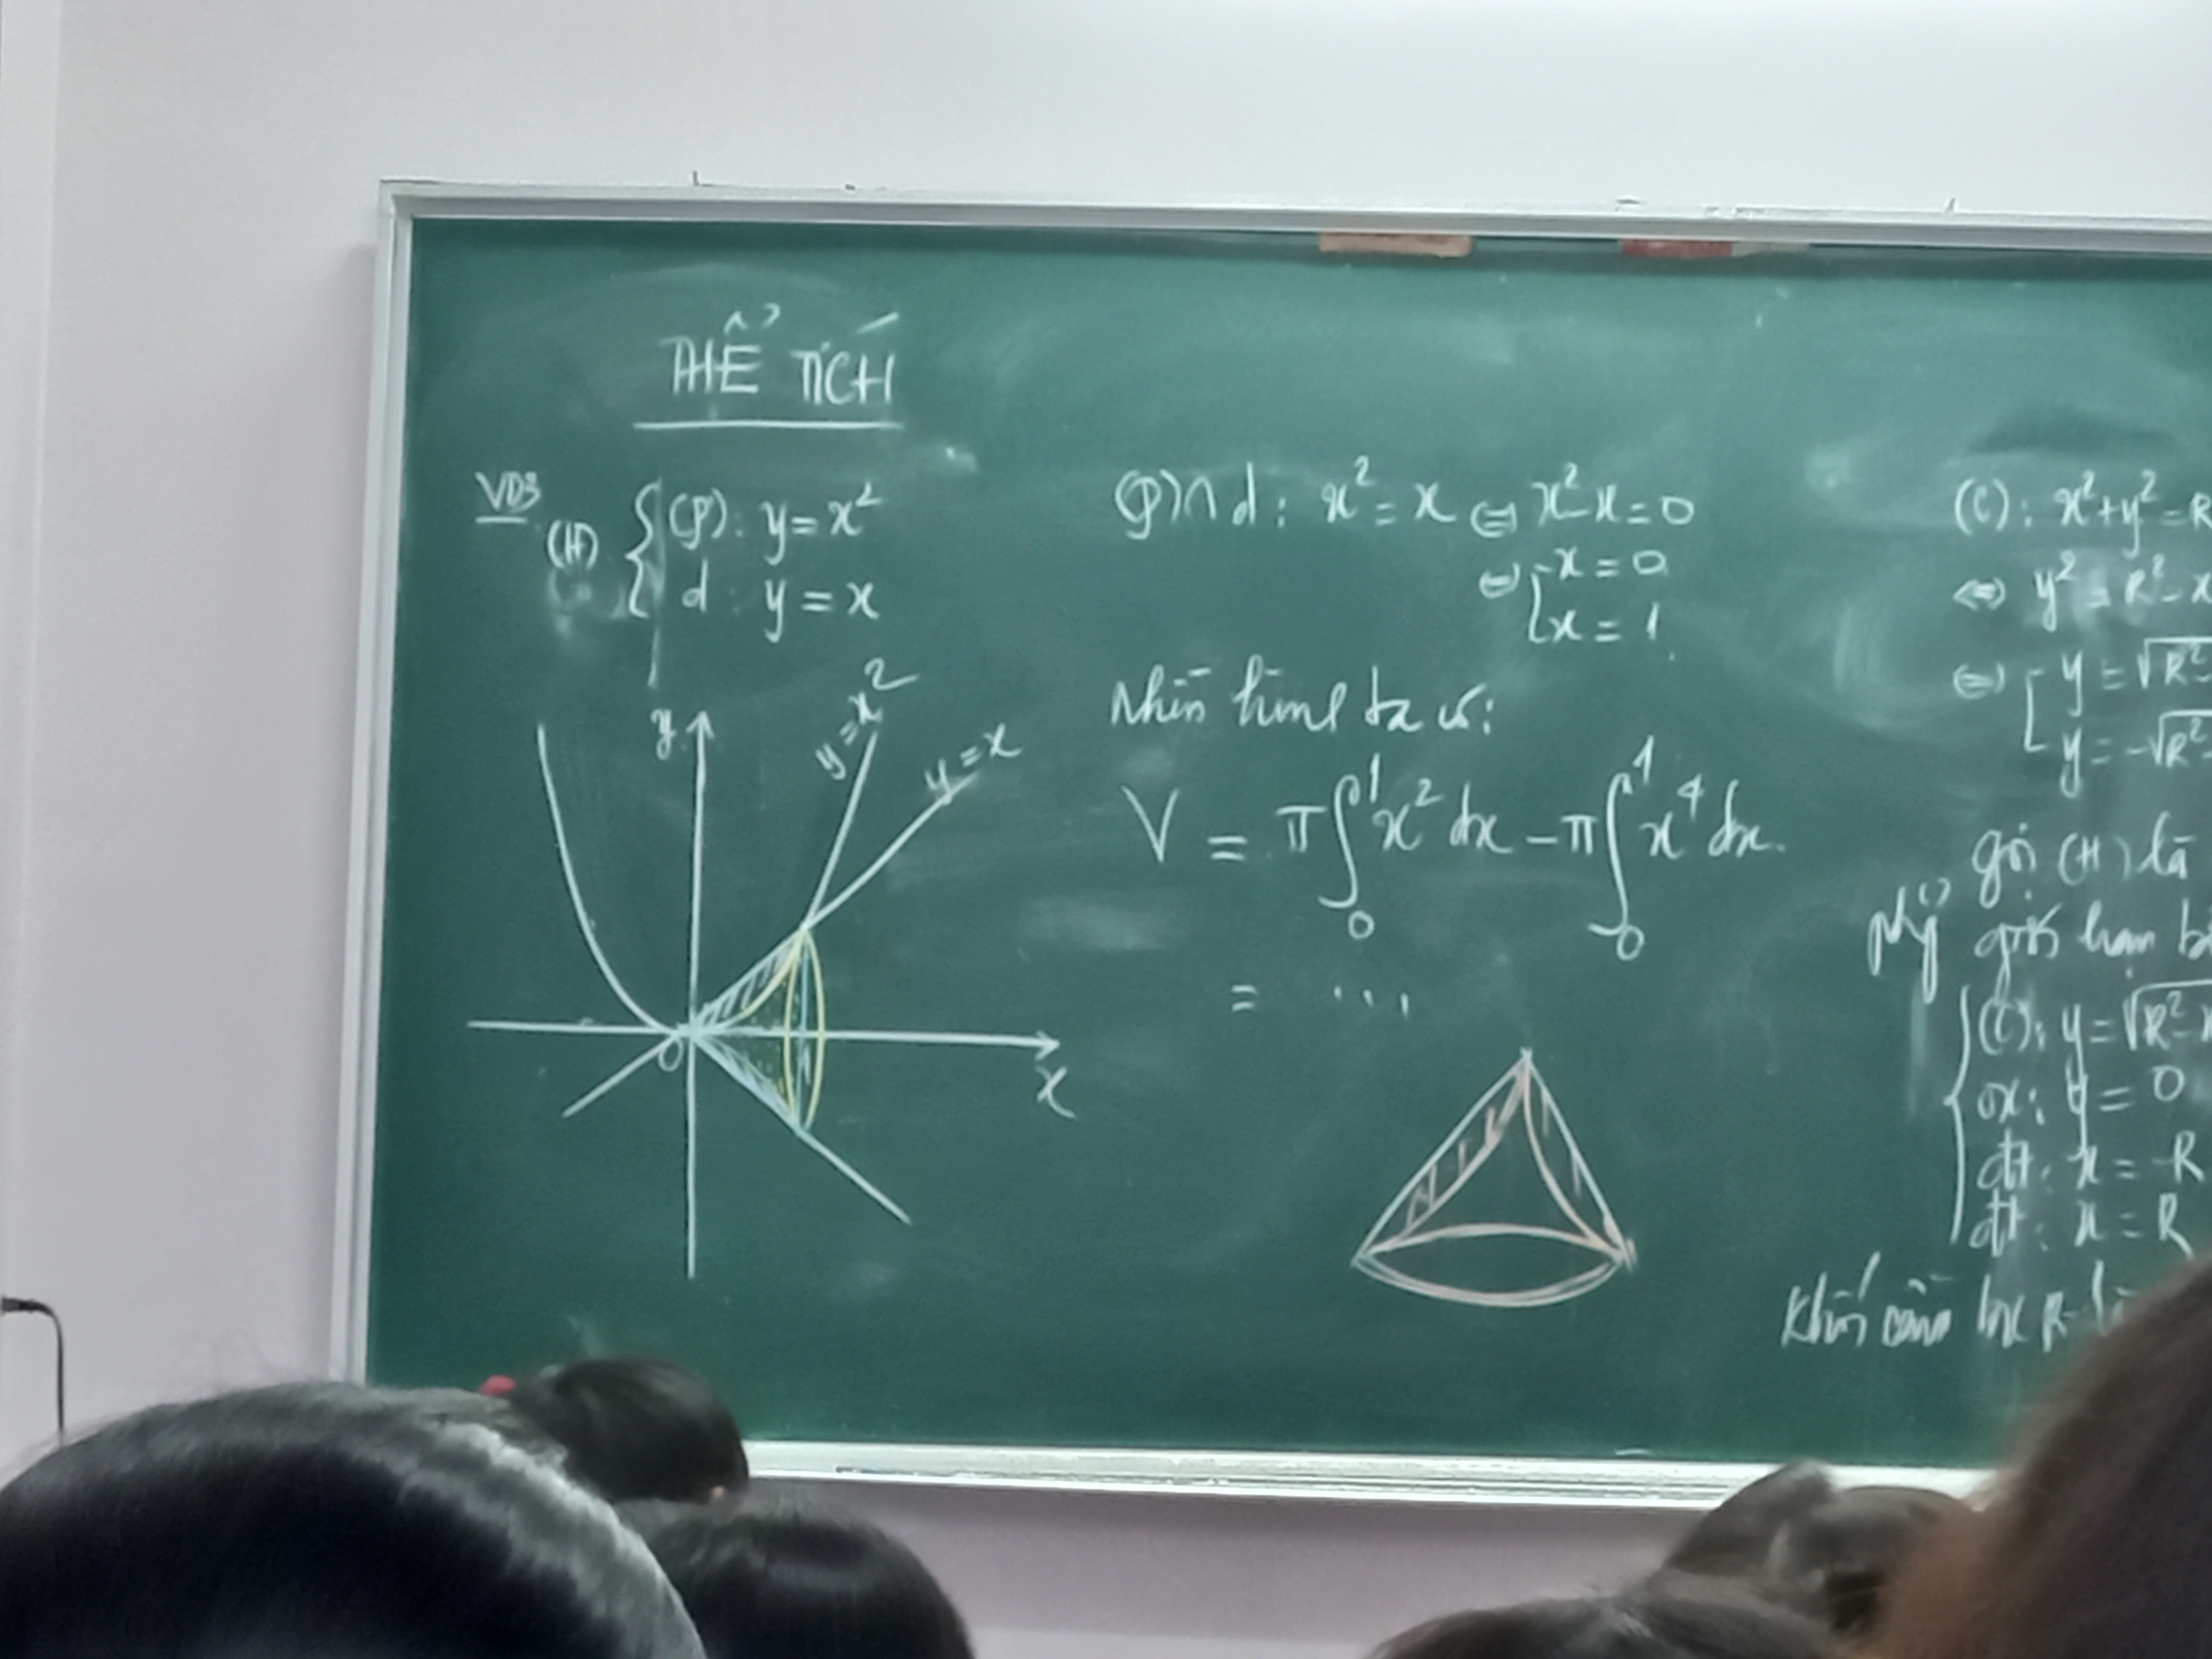 THỂ TÍCH
VD3
(H) { (P): y = x²
d : y = x
y
y = x²
y = x
O
x
(P) ∩ d : x² = x ⇔ x² - x = 0
⇔ [ x = 0
x = 1
Nhìn hình ta có:
V = π∫₀¹ x² dx - π∫₀¹ x⁴ dx.
= ...
(C): x² + y² = R
⇔ y² = R² - x
⇔ [ y = √R²
y = -√R²
gọi (H) là
phẳng giới hạn bở
{ (C): y = √R² - x
ox: y = 0
đt: x = -R
đt: x = R
Khối cầu